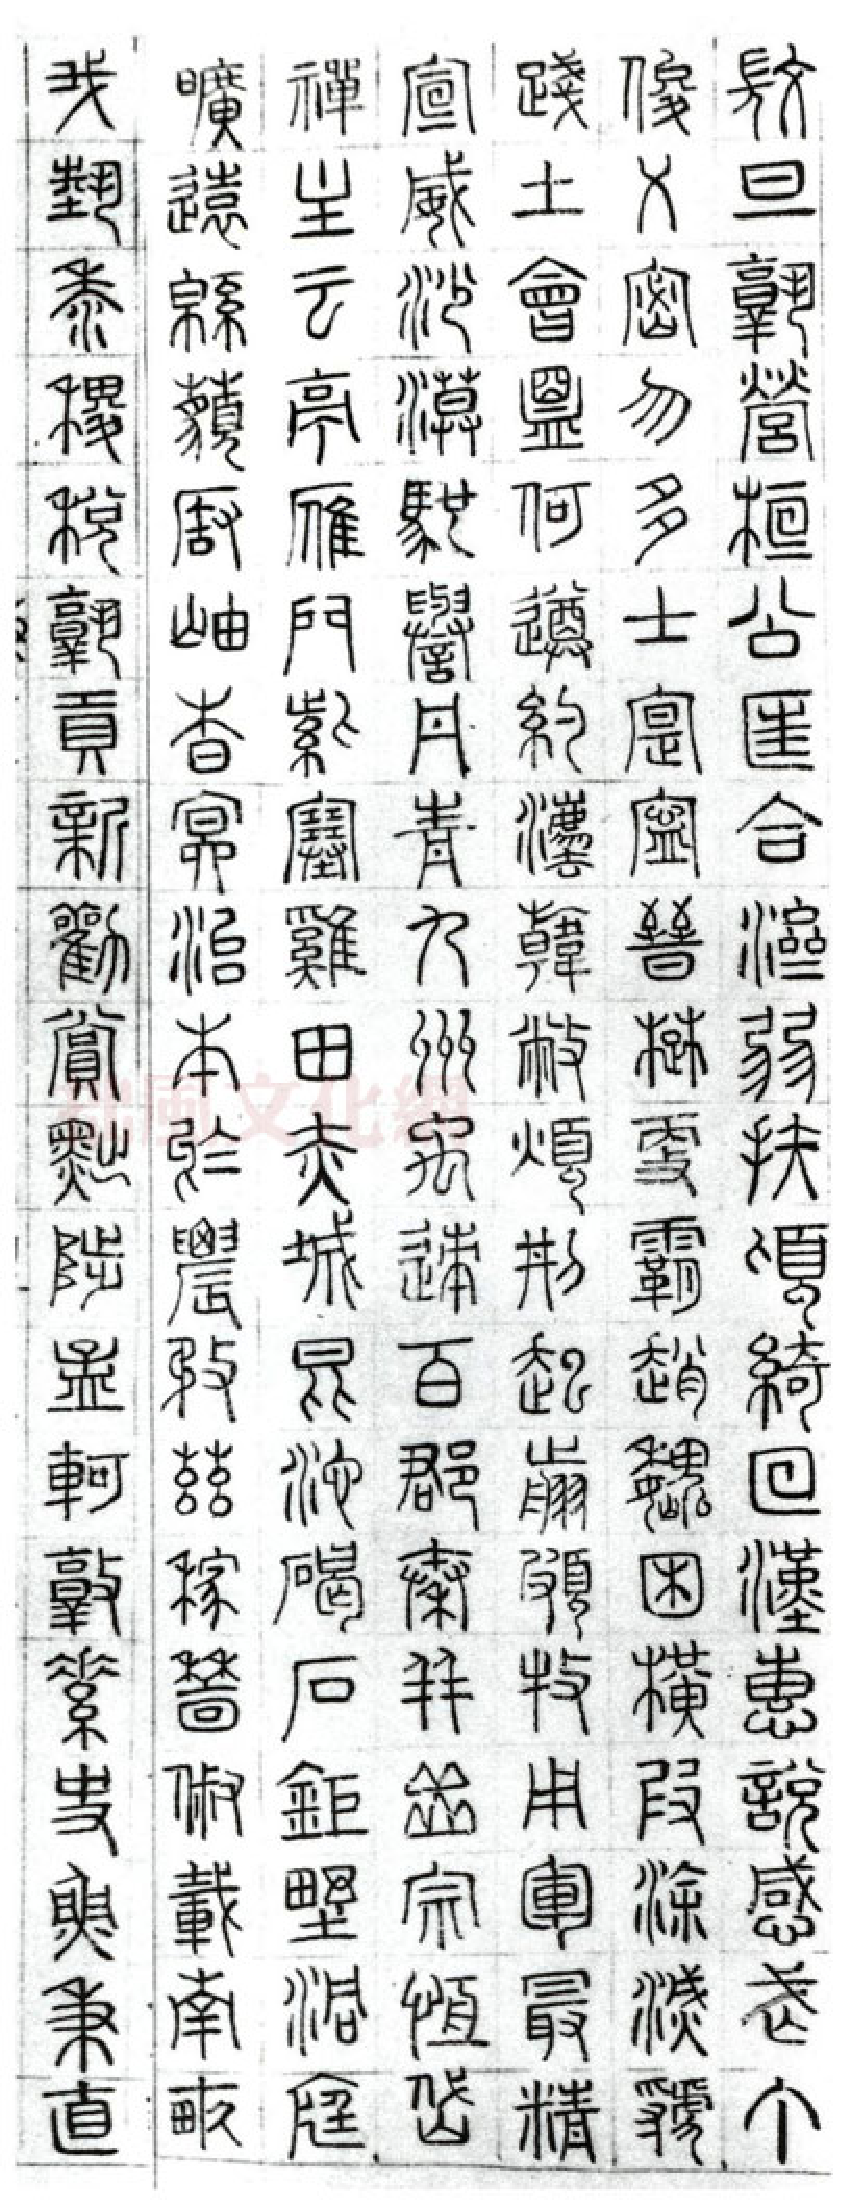 微旦孰營桓公匡合濟弱扶傾綺回漢惠說感武丁
俊乂密勿多士寔寧晉楚更霸趙魏困橫叚涂滅虢
踐土會盟何遵約灋韓敝煩刑起翦頗牧用軍最精
宣威沙漠馳譽丹青九州禹迹百郡秦并岳宗恆岱
禪主云亭雁門紫塞雞田赤城昆池碣石鉅野洞庭
曠遠緜藐巖岫杳冥治本於農務茲稼穡俶載南畝
我藝黍稷稅孰貢新勸賞黜陟孟軻敦素史魚秉直
風文化網